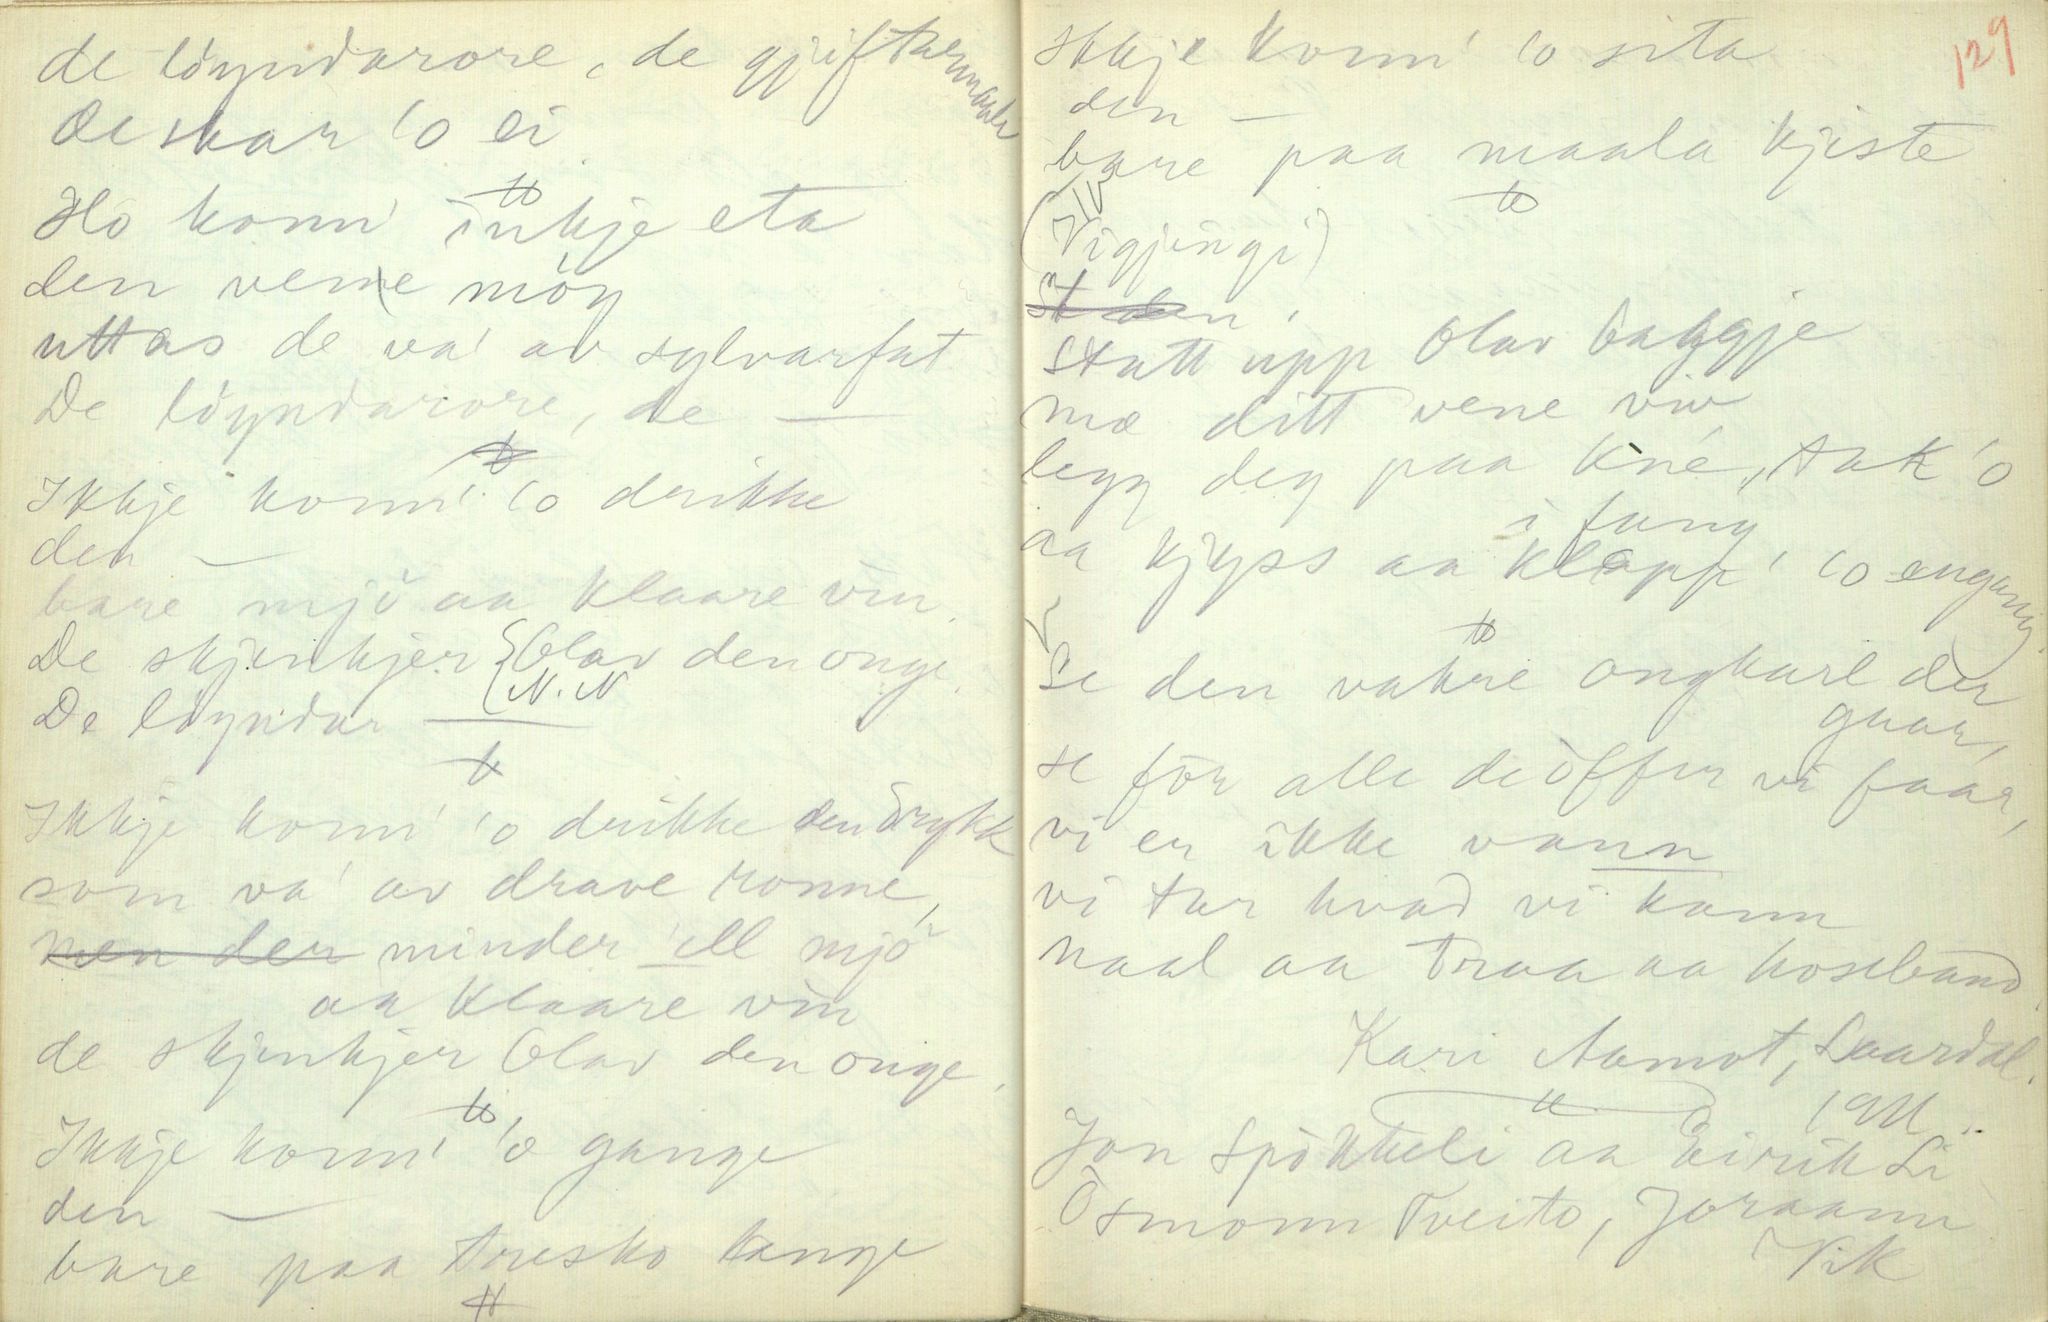 de löyndarore, de gjiftarmaale
de skar 'o ei
Ho konn' inkje eta
den vene möy
uttas de va' av sylvarfat
De löyndarore, de —
Ikkje konn' 'o drikke
den —
bare mjö aa klaare vin.
De skjenkjer Olav den onge.
N.N
De löyndar —
Ikkje konn' 'o drikke den drykk
som va' av drave ronne,
men der minder 'ell mjö
aa klaare vin
de skjenkjer Olav den onge.
Ikkje konn' 'o gange
den —
bare paa tresko lange
129
Ikkje konn' 'o sita
den —
bare paa maala kjiste
(Vigjengi)
Statt upp Olav
mæ ditt vene viv
legg deg paa kne, tak 'o
i fang
aa kjyss aa klapp' 'o engang
Se den vakre ongkarl der
gaar,
se för alle de öffer vi faar,
vi er ikke vann
vi tar hvad vi kann
naal aa traa aa hoseband.
Kari Aamot, Laardal.
1911.
Jon Spökkeli aa Eirik Li
Ösmonn Tveito, Joraann
Vik